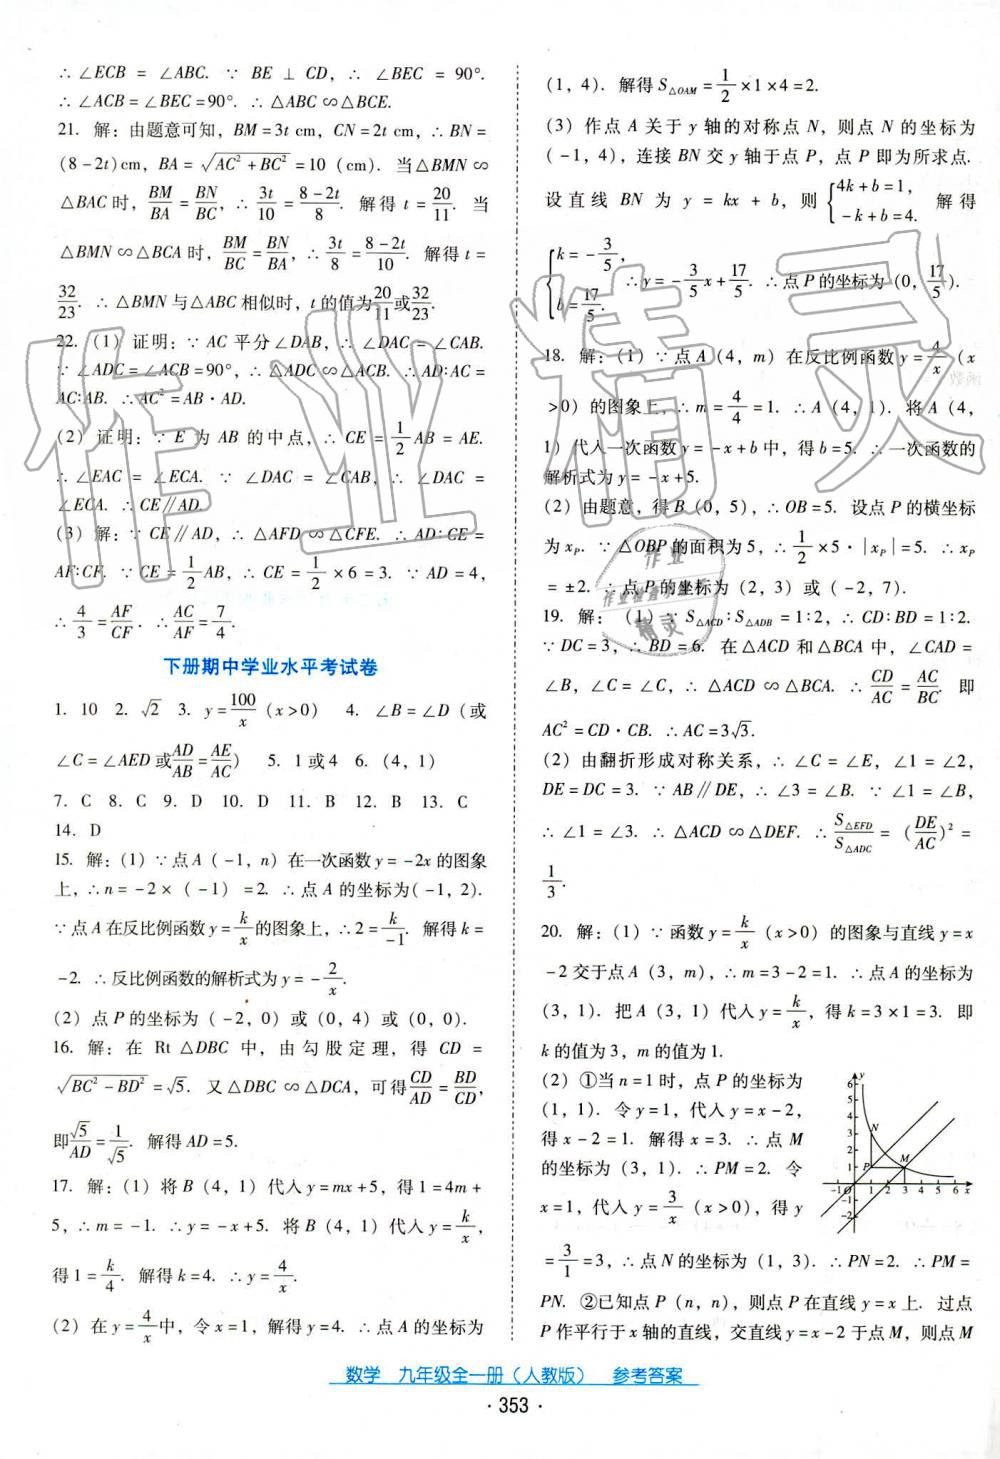 ∴∠ECB = ∠ABC. ∵ BE ⊥ CD, ∴∠BEC = 90°.
∴∠ACB=∠BEC=90°. ∴△ABC∽△BCE.
21. 解：由题意可知，BM=3t cm，CN=2t cm，∴BN=
(8-2t)cm，BA=√(AC²+BC²)=10（cm）. 当△BMN∽
△BAC时，BM/BA=BN/BC，∴3t/10=(8-2t)/8. 解得t=20/11. 当
△BMN∽△BCA时，BM/BC=BN/BA，∴3t/8=(8-2t)/10. 解得t=
32/23. ∴△BMN与△ABC相似时，t的值为20/11或32/23.
22. (1) 证明：∵AC平分∠DAB，∴∠DAC=∠CAB.
∵∠ADC=∠ACB=90°，∴△ADC∽△ACB. ∴AD∶AC=
AC∶AB. ∴AC²=AB·AD.
(2) 证明：∵E为AB的中点，∴CE=1/2AB=AE.
∴∠EAC=∠ECA. ∵∠DAC=∠CAB，∴∠DAC=
∠ECA. ∴CE∥AD.
(3) 解：∵CE∥AD，∴△AFD∽△CFE. ∴AD∶CE=
AF∶CF. ∵CE=1/2AB，∴CE=1/2×6=3. ∵AD=4，
∴4/3=AF/CF. ∴AC/AF=7/4.
下册期中学业水平考试卷
1. 10 2. √2 3. y=100/x（x>0） 4. ∠B=∠D（或
∠C=∠AED或AD/AB=AE/AC） 5. 1或4 6.（4，1）
7. C 8. C 9. D 10. D 11. B 12. B 13. C
14. D
15. 解：(1) ∵点A（-1，n）在一次函数y=-2x的图象
上，∴n=-2×（-1）=2. ∴点A的坐标为(-1，2).
∵点A在反比例函数y=k/x的图象上，∴2=k/-1. 解得k=
-2. ∴反比例函数的解析式为y=-2/x.
(2) 点P的坐标为（-2，0）或（0，4）或（0，0）.
16. 解：在Rt△DBC中，由勾股定理，得CD=
√(BC²-BD²)=√5. 又△DBC∽△DCA，可得CD/AD=BD/CD，
即√5/AD=1/√5. 解得AD=5.
17. 解：(1) 将B（4，1）代入y=mx+5，得1=4m+
5，∴m=-1. ∴y=-x+5. 将B（4，1）代入y=k/x，
得1=k/4. 解得k=4. ∴y=4/x.
(2) 在y=4/x中，令x=1，解得y=4. ∴点A的坐标为
(1，4). 解得S△OAM=1/2×1×4=2.
(3) 作点A关于y轴的对称点N，则点N的坐标为
(-1，4)，连接BN交y轴于点P，点P即为所求点.
设直线BN为y=kx+b，则{4k+b=1，-k+b=4. 解得
{k=-3/5，b=17/5. ∴y=-3/5x+17/5. ∴点P的坐标为（0，17/5）.
18. 解：(1) ∵点A（4，m）在反比例函数y=4/x（x
>0）的图象上，∴m=4/4=1. ∴A（4，1）. 将A（4，
1）代入一次函数y=-x+b中，得b=5. ∴一次函数的
解析式为y=-x+5.
(2) 由题意，得B（0，5），∴OB=5. 设点P的横坐标
为xP. ∵△OBP的面积为5，∴1/2×5·|xP|=5. ∴xP
=±2. ∴点P的坐标为（2，3）或（-2，7）.
19. 解：(1) ∵S△ACD∶S△ADB=1∶2，∴CD∶BD=1∶2.
∵DC=3，∴BD=6. 在△ACD和△BCA中，∠CAD=
∠B，∠C=∠C，∴△ACD∽△BCA. ∴CD/AC=AC/BC. 即
AC²=CD·CB. ∴AC=3√3.
(2) 由翻折形成对称关系，∴∠C=∠E，∠1=∠2，
DE=DC=3. ∵AB∥DE，∴∠3=∠B. ∵∠1=∠B，
∴∠1=∠3. ∴△ACD∽△DEF. ∴S△EFD/S△ADC=（DE/AC）²=
1/3.
20. 解：(1) ∵函数y=k/x（x>0）的图象与直线y=x
-2交于点A（3，m），∴m=3-2=1. ∴点A的坐标为
(3，1). 把A（3，1）代入y=k/x，得k=3×1=3. 即
k的值为3，m的值为1.
(2) ①当n=1时，点P的坐标为
(1，1). 令y=1，代入y=x-2，
得x-2=1. 解得x=3. ∴点M
的坐标为（3，1）. ∴PM=2. 令
x=1，代入y=3/x（x>0），得y
=3/1=3，∴点N的坐标为（1，3）. ∴PN=2. ∴PM=
PN. ②已知点P（n，n），则点P在直线y=x上. 过点
P作平行于x轴的直线，交直线y=x-2于点M，则点M
y
6
5
4
3 N
2
1 P M
-1 O 1 2 3 4 5 6 x
-1
-2
作业精灵
作业
作业检查小帮手
精灵
数学 九年级全一册（人教版） 参考答案
· 353 ·